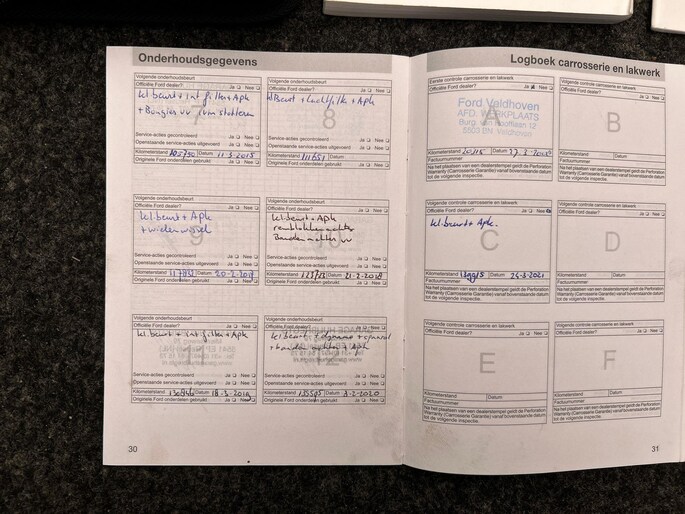 Onderhoudsgegevens
Volgende onderhoudsbeurt
Officiële Ford dealer? Ja Nee
kl.beurt + int filter + Apk
+ Bougies vv
Service-acties gecontroleerd
Openstaande service-acties uitgevoerd Ja Nee
Kilometerstand Datum 11-3-2015
Originele Ford onderdelen gebruikt Ja Nee
Volgende onderhoudsbeurt
Officiële Ford dealer? Ja Nee
Beurt + luchtfilter + Apk
8
Service-acties gecontroleerd Ja Nee
Openstaande service-acties uitgevoerd Ja Nee
Kilometerstand 111651 Datum
Originele Ford onderdelen gebruikt Ja Nee
Volgende onderhoudsbeurt
Officiële Ford dealer? Ja Nee
kl beurt + Apk
+ wielenwissel
9
Service-acties gecontroleerd Ja Nee
Openstaande service-acties uitgevoerd Ja Nee
Kilometerstand 117832 Datum 20-2-2017
Originele Ford onderdelen gebruikt Ja Nee
Volgende onderhoudsbeurt
Officiële Ford dealer? Ja Nee
kl.beurt + Apk
remblokken achter
Banden achter vv
Service-acties gecontroleerd Ja Nee
Openstaande service-acties uitgevoerd Ja Nee
Kilometerstand Datum 21-2-2018
Originele Ford onderdelen gebruikt Ja Nee
Volgende onderhoudsbeurt
Officiële Ford dealer? Ja Nee
kl beurt + int filter + Apk
11
Service-acties gecontroleerd Ja Nee
Openstaande service-acties uitgevoerd Ja Nee
Kilometerstand Datum 18-3-2019
Originele Ford onderdelen gebruikt Ja Nee
Volgende onderhoudsbeurt
Officiële Ford dealer? Ja Nee
kl beurt + dynamo + snaren
+ banden achter + Apk
12
Service-acties gecontroleerd Ja Nee
Openstaande service-acties uitgevoerd Ja Nee
Kilometerstand 135505 Datum 3-2-2020
Originele Ford onderdelen gebruikt Ja Nee
30
Logboek carrosserie en lakwerk
Eerste controle carrosserie en lakwerk
Officiële Ford dealer? Ja Nee
A
Ford Veldhoven
AFD. WERKPLAATS
Burg. van Hooflaan 12
5503 BN Veldhoven
Kilometerstand 20215 Datum
Factuurnummer
Na het plaatsen van een dealerstempel geldt de Perforation
Warranty (Carrosserie Garantie) vanaf bovenstaande datum
tot de volgende inspectie.
Volgende controle carrosserie en lakwerk
Officiële Ford dealer? Ja Nee
B
Kilometerstand Datum
Factuurnummer
Na het plaatsen van een dealerstempel geldt de Perforation
Warranty (Carrosserie Garantie) vanaf bovenstaande datum
tot de volgende inspectie.
Volgende controle carrosserie en lakwerk
Officiële Ford dealer? Ja Nee
kl.beurt + Apk.
C
Kilometerstand Datum 26-3-2021
Factuurnummer
Na het plaatsen van een dealerstempel geldt de Perforation
Warranty (Carrosserie Garantie) vanaf bovenstaande datum
tot de volgende inspectie.
Volgende controle carrosserie en lakwerk
Officiële Ford dealer? Ja Nee
D
Kilometerstand Datum
Factuurnummer
Na het plaatsen van een dealerstempel geldt de Perforation
Warranty (Carrosserie Garantie) vanaf bovenstaande datum
tot de volgende inspectie.
Volgende controle carrosserie en lakwerk
Officiële Ford dealer? Ja Nee
E
Kilometerstand Datum
Factuurnummer
Na het plaatsen van een dealerstempel geldt de Perforation
Warranty (Carrosserie Garantie) vanaf bovenstaande datum
tot de volgende inspectie.
Volgende controle carrosserie en lakwerk
Officiële Ford dealer? Ja Nee
F
Kilometerstand Datum
Factuurnummer
Na het plaatsen van een dealerstempel geldt de Perforation
Warranty (Carrosserie Garantie) vanaf bovenstaande datum
tot de volgende inspectie.
31